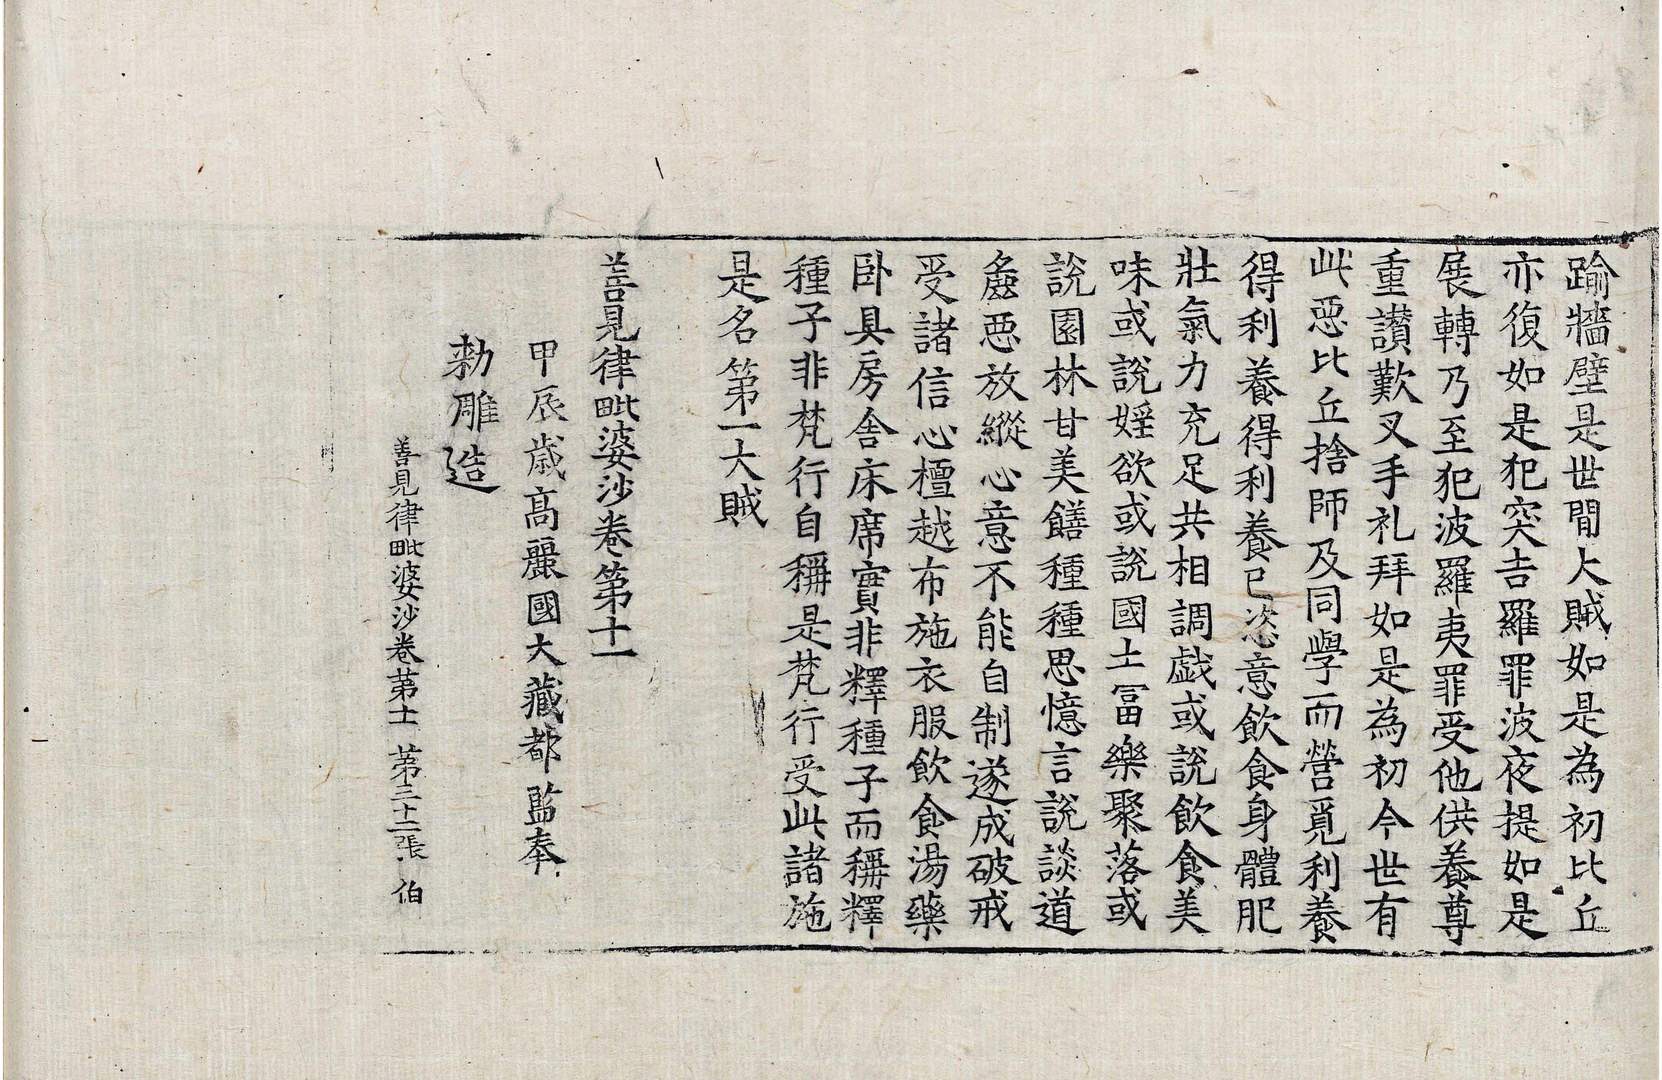 踰牆壁是世間大賊如是為初比丘
亦復如是犯突吉羅罪波夜提如是
展轉乃至犯波羅夷罪受他供養尊
重讃歎叉手礼拜如是為初今世有
此惡比丘捨師及同學而營覓利養
得利養得利養已恣意飲食身體肥
壯氣力充足共相調戱或說飲食美
味或說婬欲或說國土冨樂聚落或
說園林甘美饍種種思憶言說談道
麁惡放縱心意不能自制遂成破戒
受諸信心檀越布施衣服飲食湯藥
卧具房舍床席實非釋種子而稱釋
種子非梵行自稱是梵行受此諸施
是名第一大賊
善見律毗婆沙卷第十一
甲辰歳高麗國大藏都監奉
勑雕造
善見律毗婆沙卷第十一 第三十二張 伯